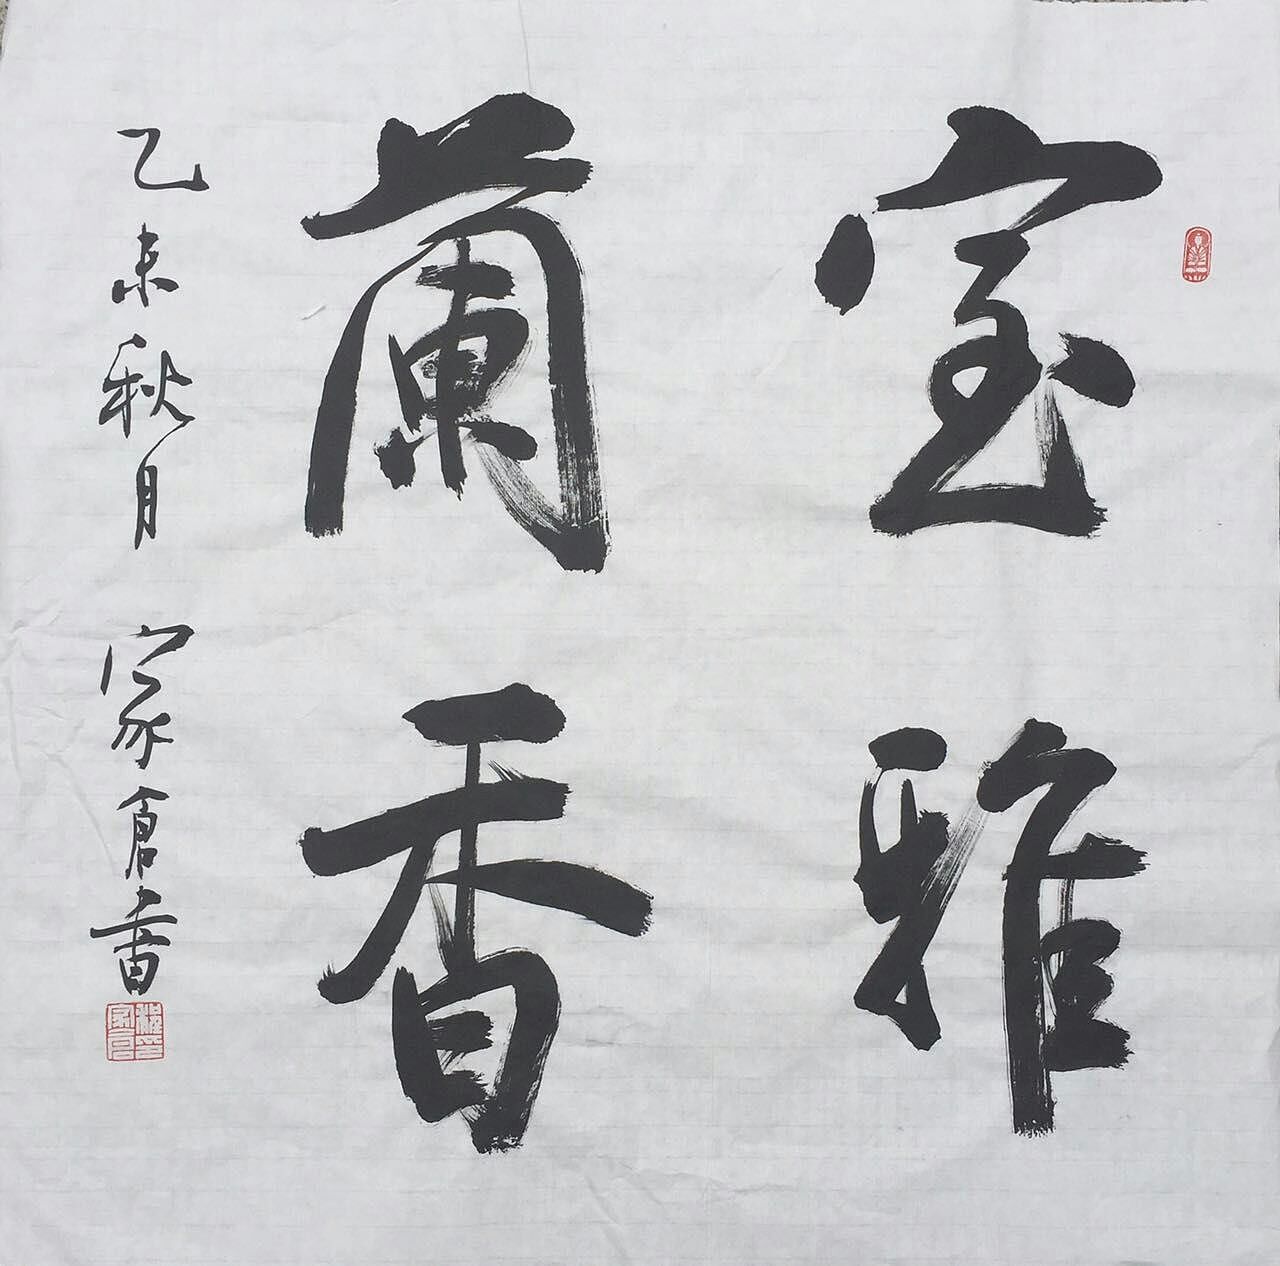 室雅
蘭香
乙未秋月 家倉書